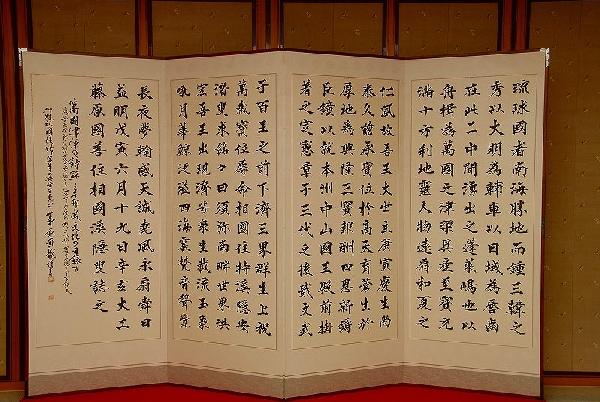 琉球國者南海勝地而鍾三韓之
秀以大明為輔車以日域為脣齒
在此二中間湧出之蓬萊嶋也以
舟楫為萬國之津梁異産至寶充
滿十方刹地靈人物遠扇和夏之
仁風故吾王大世主庚寅慶生尚
泰久茲承寶位於高天育蒼生於
厚地為興隆三寶報酬四恩新鑄
巨鐘以就本州中山國王殿前掛
著之定憲章于三代之後戢文武
于百王之前下濟三界群生上祝
萬歲寶位辱命相國住持溪隱安
潛叟求銘銘曰須彌南畔世界洪
宏吾王出現濟苦衆生截流玉象
吼月華鯨泛溢四海震梵音聲覺
長夜夢輸感天誠堯風永扇舜日
益明戊寅六月十九日辛亥大工
藤原國善住相國溪隱叟誌之
萬國津梁